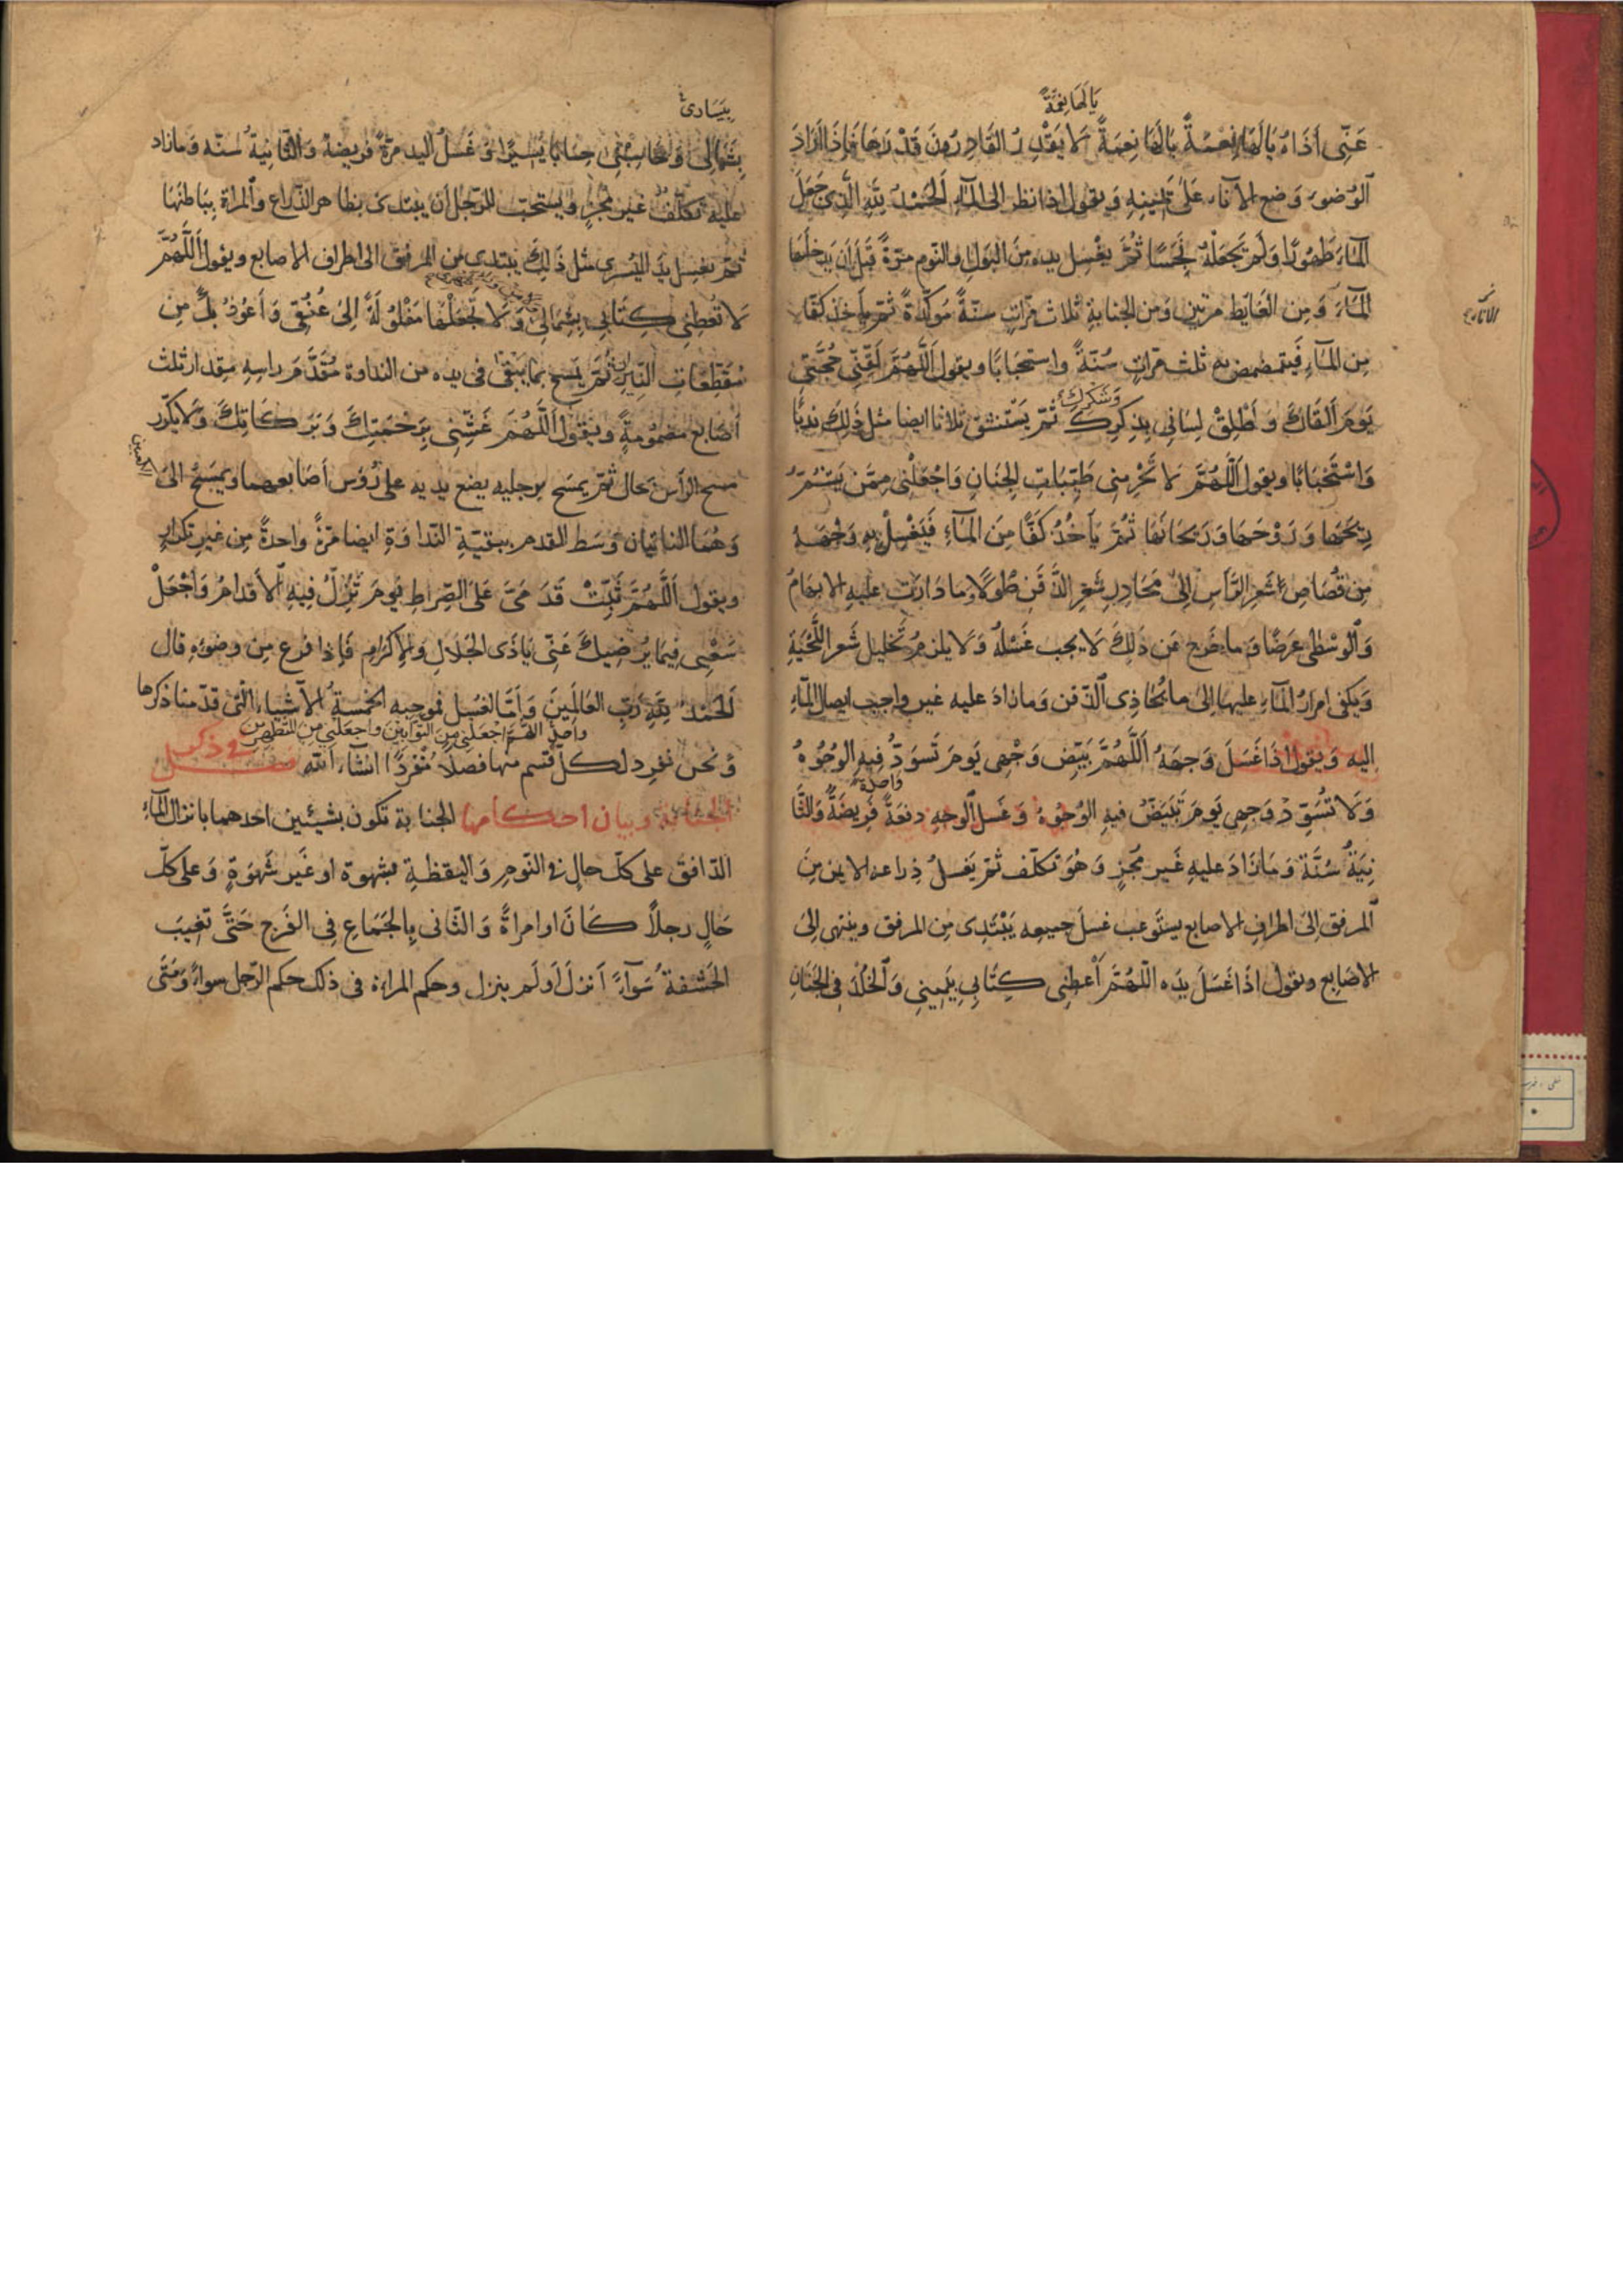 يَا لَهَا نِعْمَةً
عَنِّي أَذَاهُ يَا لَهَا نِعْمَةً يَا لَهَا نِعْمَةً لَا يَقْدِرُ القَادِرُونَ قَدْرَهَا فَإِذَا أَرَادَ
الوُضوءَ وَضع الإناء عَلَى يَمِينِهِ وَيقول إذا نظر إلى المَآءِ الحَمْدُ لِلَّهِ الَّذِي جَعَلَ
المَآءَ طَهُورًا وَلَمْ يَجْعَلْهُ نَجِسًا ثُمَّ يغْسِل يده مِنَ البَوْلِ والنّوم مَرّةً قَبْلَ أن يدخلَهَا
المَآءَ وَمِن الغَايِط مرّتين وَمن الجنابةِ ثلاث مَرّاتٍ سنّةً مُوَكّدةً ثمّ يأخذ كفّا
مِن المَآءِ فَيَتمَضمض به ثلث مرّاتٍ سُنّةً واستحبَابًا ويقول اللَّهُمَّ لَقِّنِّي حُجَّتِي
يَومَ ألقَاكَ وَأَطْلِقْ لِسَانِي بِذِكرِكَ وَشُكْرِكَ ثُمّ يَسْتنشق ثلاثا ايضا مثل ذَلِكَ ندبًا
وَاسْتَحْبَابًا ويقول اللَّهُمَّ لَا تَحْرِمنِي طَيِّبَاتِ الجِنَانِ وَاجْعَلْنِي مِمَّن يَشُمُّ
رِيحَهَا وَرَوْحَهَا وَرَيحَانَهَا ثُمَّ يَأخُذُ كَفًّا مِنَ المَآءِ فَيَغْسِلُ بِهِ وَجْهَهُ
مِن قُصَاصِ شَعرِ الرَّأسِ إلَى مَحَادِرِ شَعرِ الذَّقَنِ طُولًا وَمَا دَارَت عليهِ الابهَامُ
وَالوُسْطَى عرضًا وَما خَرج عَن ذَلِكَ لَا يجب غَسْلُهُ وَلَا يلزمُ تَخليل شَعر اللّحْيَةِ
وَيكفى امرَارُ المَآءِ عليها إلى ما يُحَاذِى الذّقن وَمازادَ عليه غير واجب ايصال المَآءِ
اليه وَيقول اذَا غَسَلَ وَجهَهُ اَللَّهُمَّ بَيِّض وَجْهِي يَومَ تَسْوَدُّ فِيهِ الوُجُوهُ
وَلَا تُسَوِّدْ وَجهِي يَومَ تَبْيَضُّ فيهِ الوُجُوهُ وَغَسْلُ الوجهِ دفعَةً وَاحدةً فَرِيضَةٌ وَالثَّا
نِيَةُ سُنَّة وَمَا زَادَ عليهِ غَير مُجزٍ وَهُوَ تكلّف ثمّ يَغسلُ ذِراعه الايمن مِنَ
المرفق إلى اطرافِ الاصابع يستَوعب غسلَ جميعه يَبْتَدِى مِن المرفق وينتهى إلى
الاصَابِع ويقول اذَا غَسَلَ يدَه اللّهُمَّ أَعطِنِى كِتَابِي بِيَمِينِي وَالخُلْدَ فِي الجِنَانِ
بِيَسَارِي
بِشِمَالِي وَحَاسِبْنِي حِسَابًا يَسِيرًا وَغَسلُ اليد مرّةً فريضة وَالثّانِيَةُ سنّة وَمازاد
عليه تكلّفٌ غير مُجْزٍ وَيستحبّ للرّجل أن يبتدى بظاهر الذّراع وَالمراة بِبَاطنها
ثمّ يغسل يدَ اليُسرى مثل ذَلِكَ يبتدى من المرفق الى اطراف الاصابع ويقول اَللَّهُمَّ
لَا تُعطِنِي كِتَابِي بِشِمَالِي وَلَا تَجْعَلْهَا مَغْلُولَةً إلى عُنُقِي وَأَعُوذُ بِكَ مِن
مُقَطِّعَاتِ النِّيرَانِ ثُمَّ يَمسح بما يَبْقَى فى يده من النداوة مُقَدَّمَ راسِهِ مِقدار ثلث
أصَابع مضمُومَةٍ وَيَقُول اَللَّهُمَّ غَشِّنِي بِرَحْمَتِكَ وَبَرَكَاتِكَ وَلَا يكرّر
مسح الرأس بحال ثُمّ يمسَح برجليه يضع يديه على رُؤسِ أصَابعهما ويَمسَحُ الى
الكعبين
وَهُمَا النّاتِيان وَسَط القدم ببقيّةِ النّداوَةِ ايضا مَرّةً واحدةً مِن غيرِ تكرارٍ
ويقول اَللَّهُمَّ ثَبِّتْ قَدَمَيَّ عَلَى الصِّرَاطِ يَومَ تَزِلُّ فِيهِ الأَقدَامُ وَاجْعَلْ
سَعْيِى فِيمَا يُرْضِيكَ عَنِّي يَا ذَى الجَلَالِ وَالإكرَامِ فَإذا فرغ مِن وضوئه قال
الحَمْدُ لِلَّهِ رَبِّ العَالَمِينَ وَأمّا الغسْل فموجبه الخمسة الأشياء الّتى قدّمنا ذكرها
واصل اللَّهُمَّ اجْعَلنِي مِنَ التَّوَّابِينَ وَاجعَلنِي مِنَ المُتَطَهِّرِينَ
وَنَحن نفرِد لكلّ قسم منها فصلًا مُفردًا انشَآءَ اللّه فصل في ذكر
الجنابة وبيان احكامها الجنابة تكون بشيئين احدهما بانزال المَآءِ
الدّافق على كلّ حال فى النّومِ وَاليقظةِ بشهوة او غير شَهوَةٍ وَعلى كلّ
حَالٍ رجلًا كَانَ او امراةً وَالثّانى بِالجَمَاعِ فى الفَرج حَتَّى تَغِيبَ
الحَشفة سَوآءً أنزلَ أو لَم ينزل وحكم المراة فى ذلك حكم الرّجل سواءً وَمَتَى